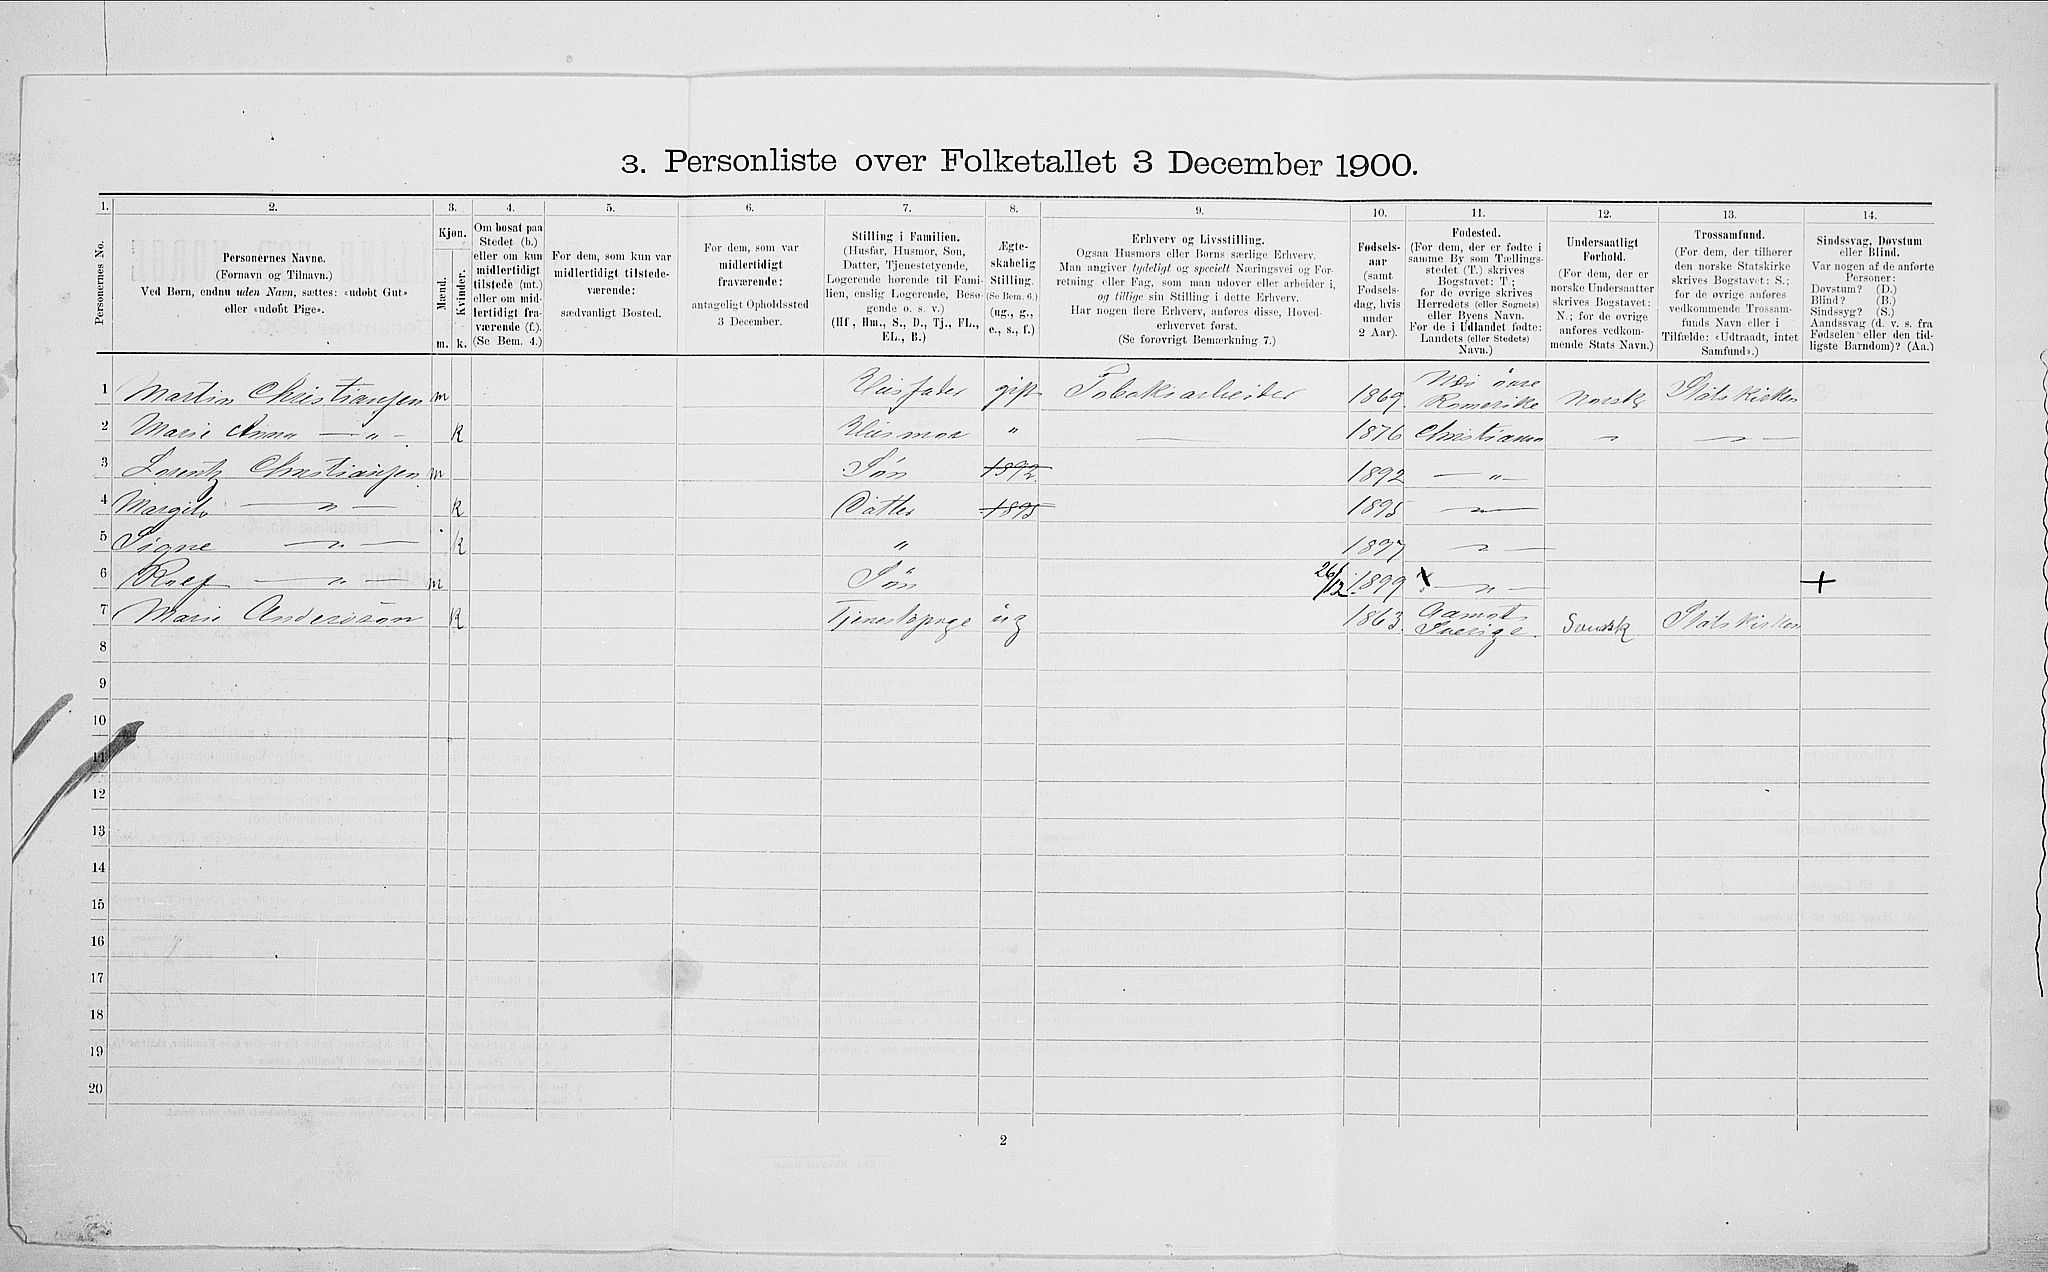 3. Personliste over Folketallet 3 December 1900.
1. 2. 3. 4. 5. 6. 7. 8. 9. 10. 11. 12. 13. 14.
Personernes No.
Personernes Navne.
(Fornavn og Tilnavn.)
Ved Børn, endnu uden Navn, sættes: «udøbt Gut»
eller «udøbt Pige».
Kjøn.
Mænd.
Kvinder.
m. k.
Om bosat paa
Stedet (b.)
eller om kun
midlertidigt
tilstede (mt.)
eller om mid-
lertidigt fra-
værende (f.).
(Se Bem. 4.)
For dem, som kun var
midlertidigt tilstede-
værende:
sædvanligt Bosted.
For dem, som var
midlertidigt
fraværende:
antageligt Opholdssted
3 December.
Stilling i Familien.
(Husfar, Husmor, Søn,
Datter, Tjenestetyende,
Logerende hørende til Fami-
lien, enslig Logerende, Besø-
gende o. s. v.)
(Hf., Hm., S., D., Tj., FL.,
EL., B.)
Ægte-
skabelig
Stilling.
(Se Bem. 6.)
(ug., g.,
e., s., f.)
Erhverv og Livsstilling.
Ogsaa Husmors eller Børns særlige Erhverv.
Man angiver tydeligt og specielt Næringsvei og For-
retning eller Fag, som man udøver eller arbeider i,
og tillige sin Stilling i dette Erhverv.
Har nogen flere Erhverv, anføres disse, Hoved-
erhvervet først.
(Se forøvrigt Bemærkning 7.)
Fødsels-
aar
(samt
Fødsels-
dag, hvis
under
2 Aar).
Fødested.
(For dem, der er fødte i
samme By som Tællings-
stedet (T.) skrives
Bogstavet: T.;
for de øvrige skrives
Herredets (eller Sognets)
eller Byens Navn.
For de i Udlandet fødte:
Landets (eller Stedets)
Navn.)
Undersaatligt
Forhold.
(For dem, der er
norske Undersaatter
skrives Bogstavet:
N.; for de øvrige
anføres vedkom-
mende Stats Navn.)
Trossamfund.
(For dem, der tilhører
den norske Statskirke
skrives Bogstavet: S.;
for de øvrige anføres
vedkommende Trossam-
funds Navn eller i
Tilfælde: «Udtraadt, intet
Samfund».)
Sindssvag, Døvstum
eller Blind.
Var nogen af de anførte
Personer:
Døvstum? (D.)
Blind? (B.)
Sindssyg? (S.)
Aandssvag (d. v. s. fra
Fødselen eller den tid-
ligste Barndom)? (Aa.)
1 Martin Christiansen m Husfader gift Tobaksarbeider 1869. Næs øvre Romerike Norsk Statskirken
2 Marie Anna — „ — k Husmor „ — 1876 Christiania „ — „ —
3 Lorentz Christiansen m Søn 1892 1892 — „ —
4 Margit — „ — k Datter 1895 1895 — „ —
5 Signe — „ — k „ 1897 — „ —
6 Rolf — „ — m Søn 26/12 1899 x — „ — +
7 Marie Anderson k Tjenestepige ug 1863. Aamot Sverige. Svensk Statskirken
8
9
10
11
12
13
14
15
16
17
18
19
20
2